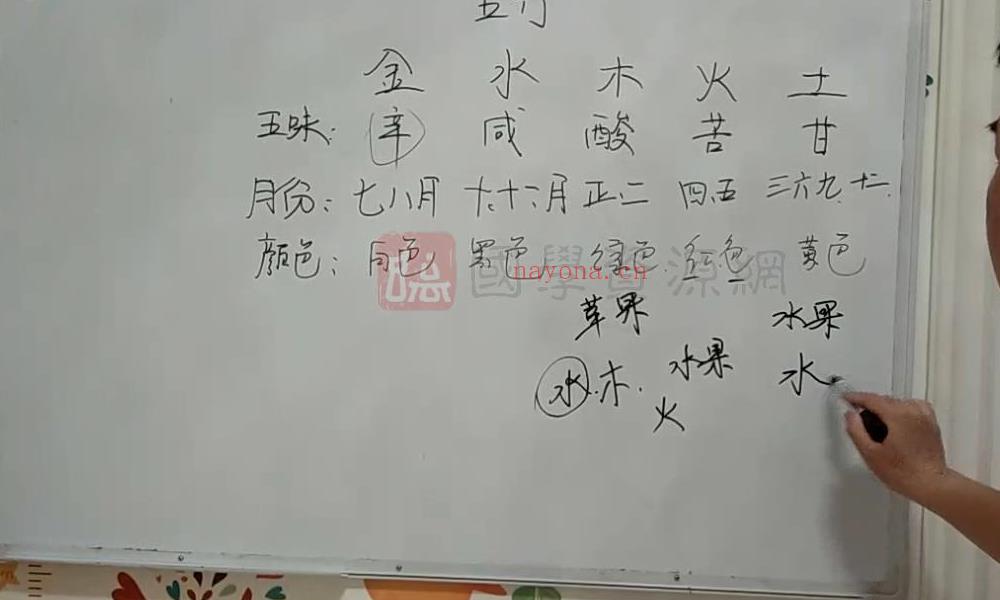 五行
金 水 木 火 土
五味: 辛 咸 酸 苦 甘
月份: 七八月 十、十一月 正、二 四、五 三六九、十二、
颜色: 白色 黑色 绿色. 红色 黄色
國學資源網
nayona.cn
苹果 水果
水.木. 水果 水
火